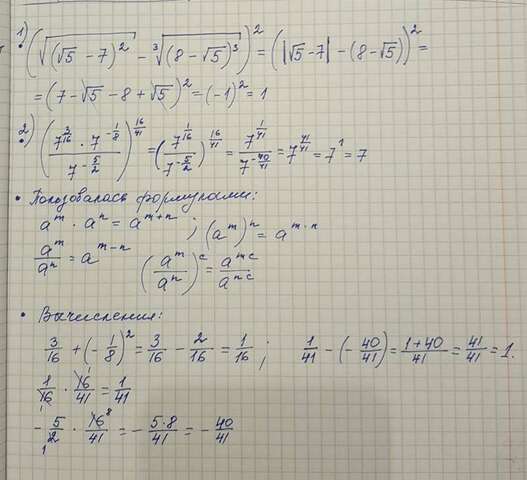 1) (√(√5 - 7)² - ³√(8 - √5)³)² = (|√5 - 7| - (8 - √5))² =
= (7 - √5 - 8 + √5)² = (-1)² = 1
2) ((7^(3/16) · 7^(-1/8)) / 7^(-5/2))^(16/41) = (7^(1/16) / 7^(-5/2))^(16/41) = 7^(1/41) / 7^(-40/41) = 7^(41/41) = 7¹ = 7
• Пользовалась формулами:
a^m · a^n = a^(m+n) ; (a^m)^n = a^(m·n)
a^m / a^n = a^(m-n) (a^m / a^n)^c = a^(mc) / a^(nc)
• Вычисления:
3/16 + (-1/8)² = 3/16 - 2/16 = 1/16 ; 1/41 - (-40/41) = (1+40)/41 = 41/41 = 1.
1/16 · 16/41 = 1/41
-5/2 · 16/41 = -(5·8)/41 = -40/41